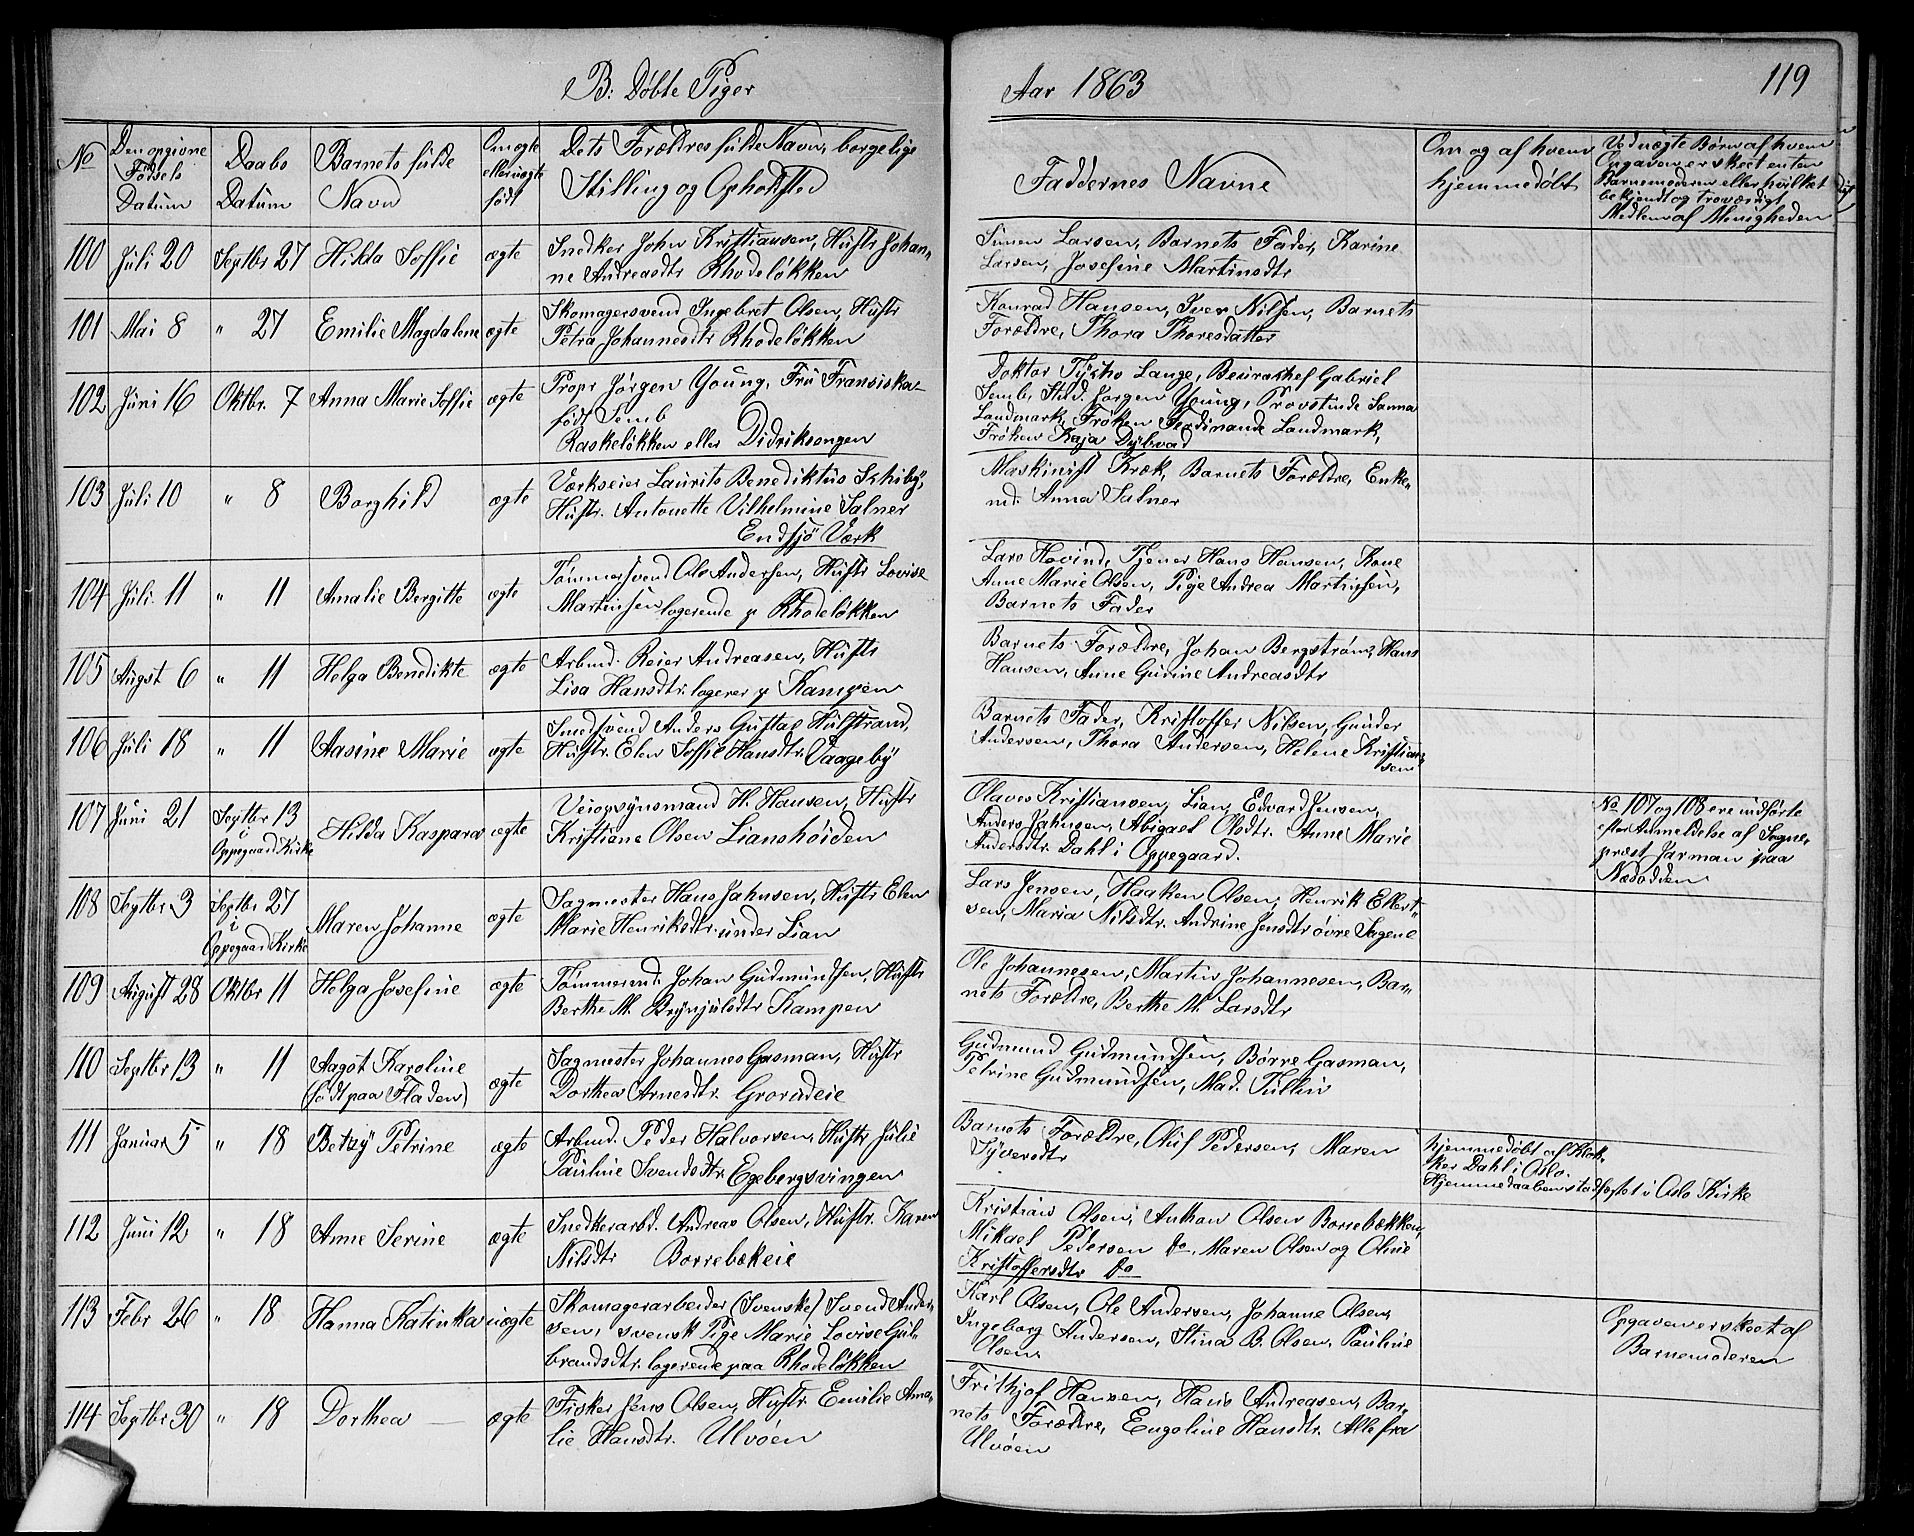 B: Döbte Piger
Aar 1863
119
No
Den opgivne
Födsels
Datum
Daabs
Datum
Barnets fulde
Navn
Om ægte
eller uægte
født
Dets Forældres fulde Navn, borgelige
Stilling og Opholdsted
Faddernes Navne
Om og af hvem
hjemmedøbt
Ved uægte Børn af hvem
Opgaven er skeet enten
Barnemoderen eller hvilket
bekjendt og troværdigt
Medlem af Menigheden
100 Juli 20 Septbr 27 Hilda Soffie ægte
Snedker John Kristiansen, Hustr Johan-
ne Andreasdtr Rhodeløkken
Simen Larsen, Barnets Fader, Karine
Larsen, Josefine Martinsdtr
101 Mai 8 " 27 Emilie Magdalene ægte
Skomagersvend Ingebret Olsen, Hustr
Petra Johannesdtr Rhodeløkken
Konrad Hansen, Iver Nilsen, Barnets
Forældre, Thora Thoresdatter
102 Juni 16 Oktbr. 7 Anna Marie Soffie ægte
Propr Jørgen Young, Fru Fransiska
født Semb
Raskeløkken eller Didriksongen
Doktor Tycho Lange, Beurochef Gabriel
Semb, Stud. Jørgen Young, Provstinde Sanna
Landmark, Frøken Ferdinande Landmark,
Frøken Kaja Dybvad
103 Juli 10 " 8 Borghild ægte
Værkseier Laurits Benediktus Schiby,
Hustr. Antonette Vilhelmine Salner
Endsjø Værk
Maskinist Kræk, Barnets Forældre, Enke-
md. Anna Salner
104 Juli 11 " 11 Amalie Bergitte ægte
Tømmersvend Ole Andersen, Hustr Lovise
Martinsen logerende p Rhodeløkken
Lars Hovind, Tjener Hans Hansen, Kone
Anne Marie Olsen, Pige Andrea Martinsen,
Barnets Fader
105 Augst 6 " 11 Helga Benedikte ægte
Arbmd. Reier Andreasen, Hustr
Lisa Hansdtr. logerer p Kampen
Barnets Forældre, Johan Bergstrøm, Hans
Hansen, Anne Gurine Andreasdtr
106 Juli 18 " 11 Aasine Marie ægte
Smedsvend Anders Gustav Hultstrand,
Hustr. Elen Soffie Hansdtr. Vaageby
Barnets Fader, Kristoffer Nilsen, Gunder
Andersen, Thora Andersen, Helene Kristian-
sen
107 Juni 21 Septbr 13
i
Oppegaard Kirke
Hilda Kaspara ægte
Veiopsynsmand H. Hansen, Hustr
Kristiane Olsen Lianshöiden
Olaves Kristiansen, Lian, Edvard Jensen,
Anders Jahnsen, Abigael Olsdtr. Anne Marie
Andersdtr. Dahl i Oppegaard.
No 107 og 108 ere indförte
efter Anmeldelse af Sogne-
præst Jarman paa
Næsodden
108 Septbr 3 Septbr 27
i
Oppegaard Kirke
Maren Johanne ægte
Sagmester Hans Jahnsen, Hustr Elen
Marie Henriksdtr. under Lian
Lars Jensen, Haaken Olsen, Henrik Ellert-
sen, Maria Nilsdtr. Andrine Jensdtr øvre Sagene
109 August 28 Oktbr 11 Helga Josefine ægte
Tømmermd. Johan Gudmundsen, Hustr
Berthe M. Brynjulsdtr Kampen
Ole Johannesen, Martin Johannesen, Bar-
nets Forældre, Berthe M. Larsdtr
110 Septbr 13 " 11 Aagot Karoline
(født paa Fladen) ægte
Sagmester Johannes Gasman, Hustr
Dorthea Arnesdtr. Grorudeie
Gudmund Gudmundsen, Børre Gasman,
Petrine Gudmundsen, Mad. Tullin
111 Januar 5 " 18 Betzy Petrine ægte
Arbmd. Peder Halvorsen, Hustr Julie
Pauline Svendsdtr. Egebergsvingen
Barnets Forældre, Oluf Pedersen, Maren
Syversdtr
hjemmedøbt af Klok-
ker Dahl i Oslo.
Hjemmedaaben stadfæstet i Oslo Kirke
112 Juni 12 " 18 Anne Serine ægte
Snedkerarbr. Andreas Olsen, Hustr. Karen
Nilsdtr Borrebækeie
Kristian Olsen, Anthon Olsen Borrebækken,
Mikael Pedersen do, Maren Olsen og Oline
Kristoffersdtr do
113 Febr 26 " 18 Hanna Katinka uægte
Skomagerarbeider (Svenske) Svend Ander-
sen, svensk Pige Marie Lovise Gul-
brandsdtr. logerende paa Rhodeløkken
Karl Olsen, Ole Andersen, Johanne Olsen,
Ingeborg Andersen, Stina B. Olsen, Pauline
Olsen
Opgaven er skeet af
Barnemoderen
114 Septbr 30 " 18 Dorthea — ægte
Fisker Jens Olsen, Hustr. Emilie Ama-
lie Hansdtr. Ulvøen
Frithjof Hansen, Hans Andreasen, Bar-
nets Forældre, Engeline Hansdtr. Alle fra
Ulvøen